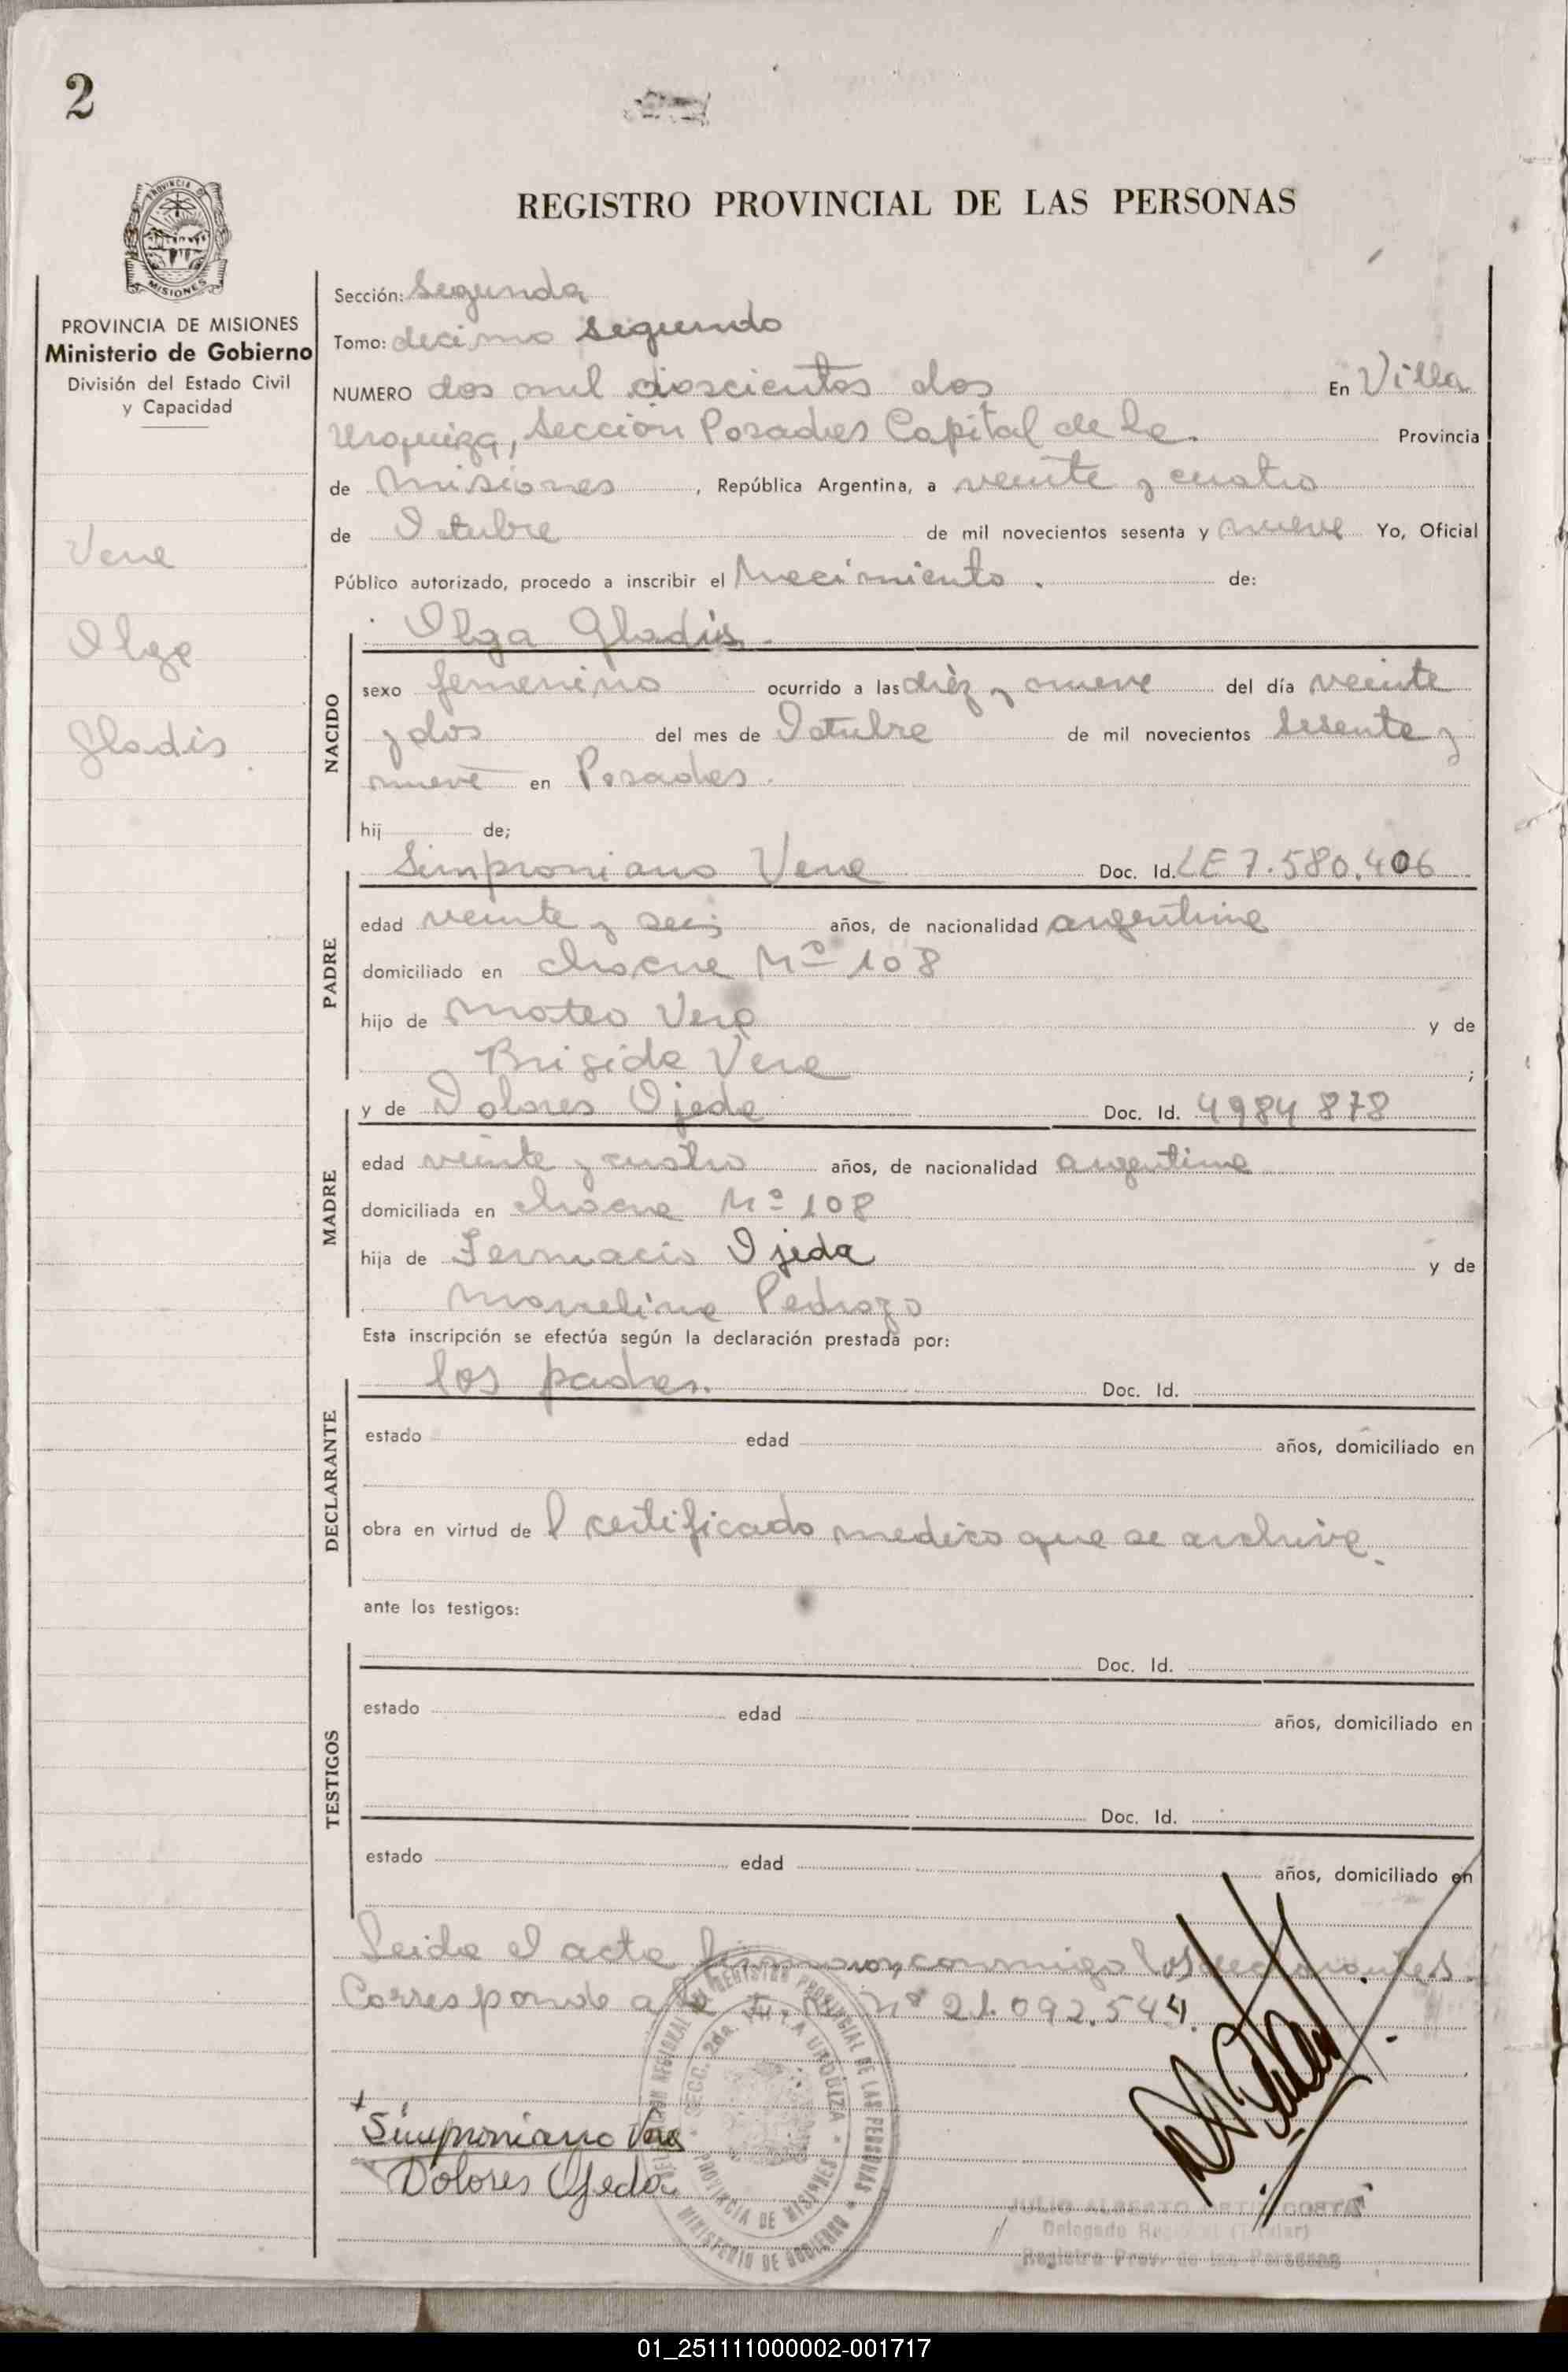 2
REGISTRO PROVINCIAL DE LAS PERSONAS
PROVINCIA DE
MISIONES
PROVINCIA DE MISIONES
Ministerio de Gobierno
División del Estado Civil
y Capacidad
Vera
Olga
Gladis
Sección: Segunda
Tomo: decimo segundo
NUMERO dos mil doscientos dos En Villa
Urquiza, Sección Posadas Capital de la Provincia
de Misiones, República Argentina, a veinte y cuatro
de Octubre de mil novecientos sesenta y nueve Yo, Oficial
Público autorizado, procedo a inscribir el Nacimiento. de:
Olga Gladis.
NACIDO
sexo femenino ocurrido a las diéz y nueve del día veinte
y dos del mes de Octubre de mil novecientos sesenta y
nueve en Posadas.
hij de;
Simproniano Vera Doc. Id. LE 7.580.406
PADRE
edad veinte y seis años, de nacionalidad argentina
domiciliado en chacra Nº 108
hijo de Mateo Vera y de
Brigida Vera ;
y de Dolores Ojeda Doc. Id. 4984 878
MADRE
edad veinte y cuatro años, de nacionalidad argentina
domiciliada en chacra Nº 108
hija de Ojeda y de
Marcelina Pedrozo
Esta inscripción se efectúa según la declaración prestada por:
los padres. Doc. Id.
DECLARANTE
estado edad años, domiciliado en
obra en virtud de l certificado medico que se archiva.
ante los testigos:
Doc. Id.
TESTIGOS
estado edad años, domiciliado en
Doc. Id.
estado edad años, domiciliado en
Leida el acta firmaron conmigo los declarantes.
Corresponde a la Nº 21.092.544.
DELEGACION REGIONAL DEL REGISTRO PROVINCIAL DE LAS PERSONAS
SECC. 2da. VILLA URQUIZA
PROVINCIA DE MISIONES
MINISTERIO DE GOBIERNO
Simproniano Vera
Dolores Ojeda
JULIO ALBERTO ORTIZ COSTA
Delegado Regional (Titular)
Registro Prov. de las Personas
01_251111000002-001717